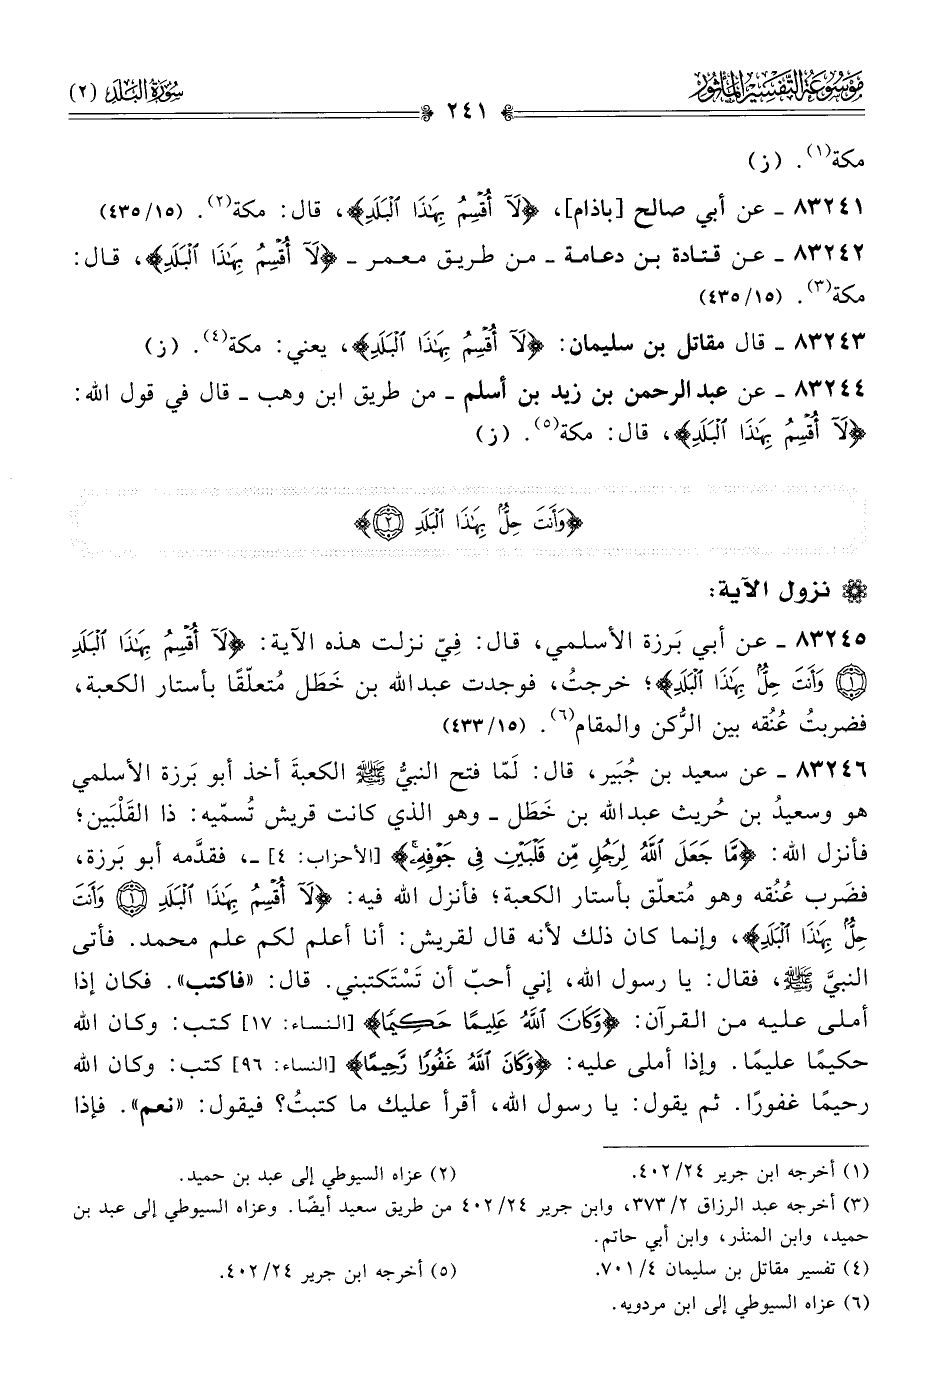 موسوعة التفسير المأثور
سورة البلد (٢)
٢٤١
مكة(١). (ز)
٨٣٢٤١ ـ عن أبي صالح [باذام]، ﴿لَآ أُقۡسِمُ بِهَٰذَا ٱلۡبَلَدِ﴾، قال: مكة(٢). (٤٣٥/١٥)
٨٣٢٤٢ ـ عن قتادة بن دعامة ـ من طريق معمر ـ ﴿لَآ أُقۡسِمُ بِهَٰذَا ٱلۡبَلَدِ﴾، قال:
مكة(٣). (٤٣٥/١٥)
٨٣٢٤٣ ـ قال مقاتل بن سليمان: ﴿لَآ أُقۡسِمُ بِهَٰذَا ٱلۡبَلَدِ﴾، يعني: مكة(٤). (ز)
٨٣٢٤٤ ـ عن عبدالرحمن بن زيد بن أسلم ـ من طريق ابن وهب ـ قال في قول الله:
﴿لَآ أُقۡسِمُ بِهَٰذَا ٱلۡبَلَدِ﴾، قال: مكة(٥). (ز)
﴿وَأَنتَ حِلُّۢ بِهَٰذَا ٱلۡبَلَدِ ٢﴾
نزول الآية:
٨٣٢٤٥ ـ عن أبي بَرزة الأسلمي، قال: فِيّ نزلت هذه الآية: ﴿لَآ أُقۡسِمُ بِهَٰذَا ٱلۡبَلَدِ
١ وَأَنتَ حِلُّۢ بِهَٰذَا ٱلۡبَلَدِ﴾؛ خرجتُ، فوجدت عبدالله بن خَطَل مُتعلّقًا بأستار الكعبة،
فضربتُ عُنُقه بين الرُّكن والمقام(٦). (٤٣٣/١٥)
٨٣٢٤٦ ـ عن سعيد بن جُبَير، قال: لَمّا فتح النبيُّ ﷺ الكعبةَ أخذ أبو بَرزة الأسلمي
هو وسعيدُ بن حُريث عبدالله بن خَطَل ـ وهو الذي كانت قريش تُسمّيه: ذا القَلْبَين؛
فأنزل الله: ﴿مَّا جَعَلَ ٱللَّهُ لِرَجُلٖ مِّن قَلۡبَيۡنِ فِي جَوۡفِهِۦۚ﴾ [الأحزاب: ٤] ـ، فقدَّمه أبو بَرزة،
فضَرب عُنُقه وهو مُتعلّق بأستار الكعبة؛ فأنزل الله فيه: ﴿لَآ أُقۡسِمُ بِهَٰذَا ٱلۡبَلَدِ ١ وَأَنتَ
حِلُّۢ بِهَٰذَا ٱلۡبَلَدِ﴾، وإنما كان ذلك لأنه قال لقريش: أنا أعلم لكم علم محمد. فأتى
النبيَّ ﷺ، فقال: يا رسول الله، إني أحبّ أن تَسْتكتبني. قال: «فاكتب». فكان إذا
أملى عليه من القرآن: ﴿وَكَانَ ٱللَّهُ عَلِيمًا حَكِيمًا﴾ [النساء: ١٧] كتب: وكان الله
حكيمًا عليمًا. وإذا أملى عليه: ﴿وَكَانَ ٱللَّهُ غَفُورٗا رَّحِيمًا﴾ [النساء: ٩٦] كتب: وكان الله
رحيمًا غفورًا. ثم يقول: يا رسول الله، أقرأ عليك ما كتبتُ؟ فيقول: «نعم». فإذا
(١) أخرجه ابن جرير ٢٤/ ٤٠٢.
(٢) عزاه السيوطي إلى عبد بن حميد.
(٣) أخرجه عبد الرزاق ٢/ ٣٧٣، وابن جرير ٢٤/ ٤٠٢ من طريق سعيد أيضًا. وعزاه السيوطي إلى عبد بن
حميد، وابن المنذر، وابن أبي حاتم.
(٤) تفسير مقاتل بن سليمان ٤/ ٧٠١.
(٥) أخرجه ابن جرير ٢٤/ ٤٠٢.
(٦) عزاه السيوطي إلى ابن مردويه.